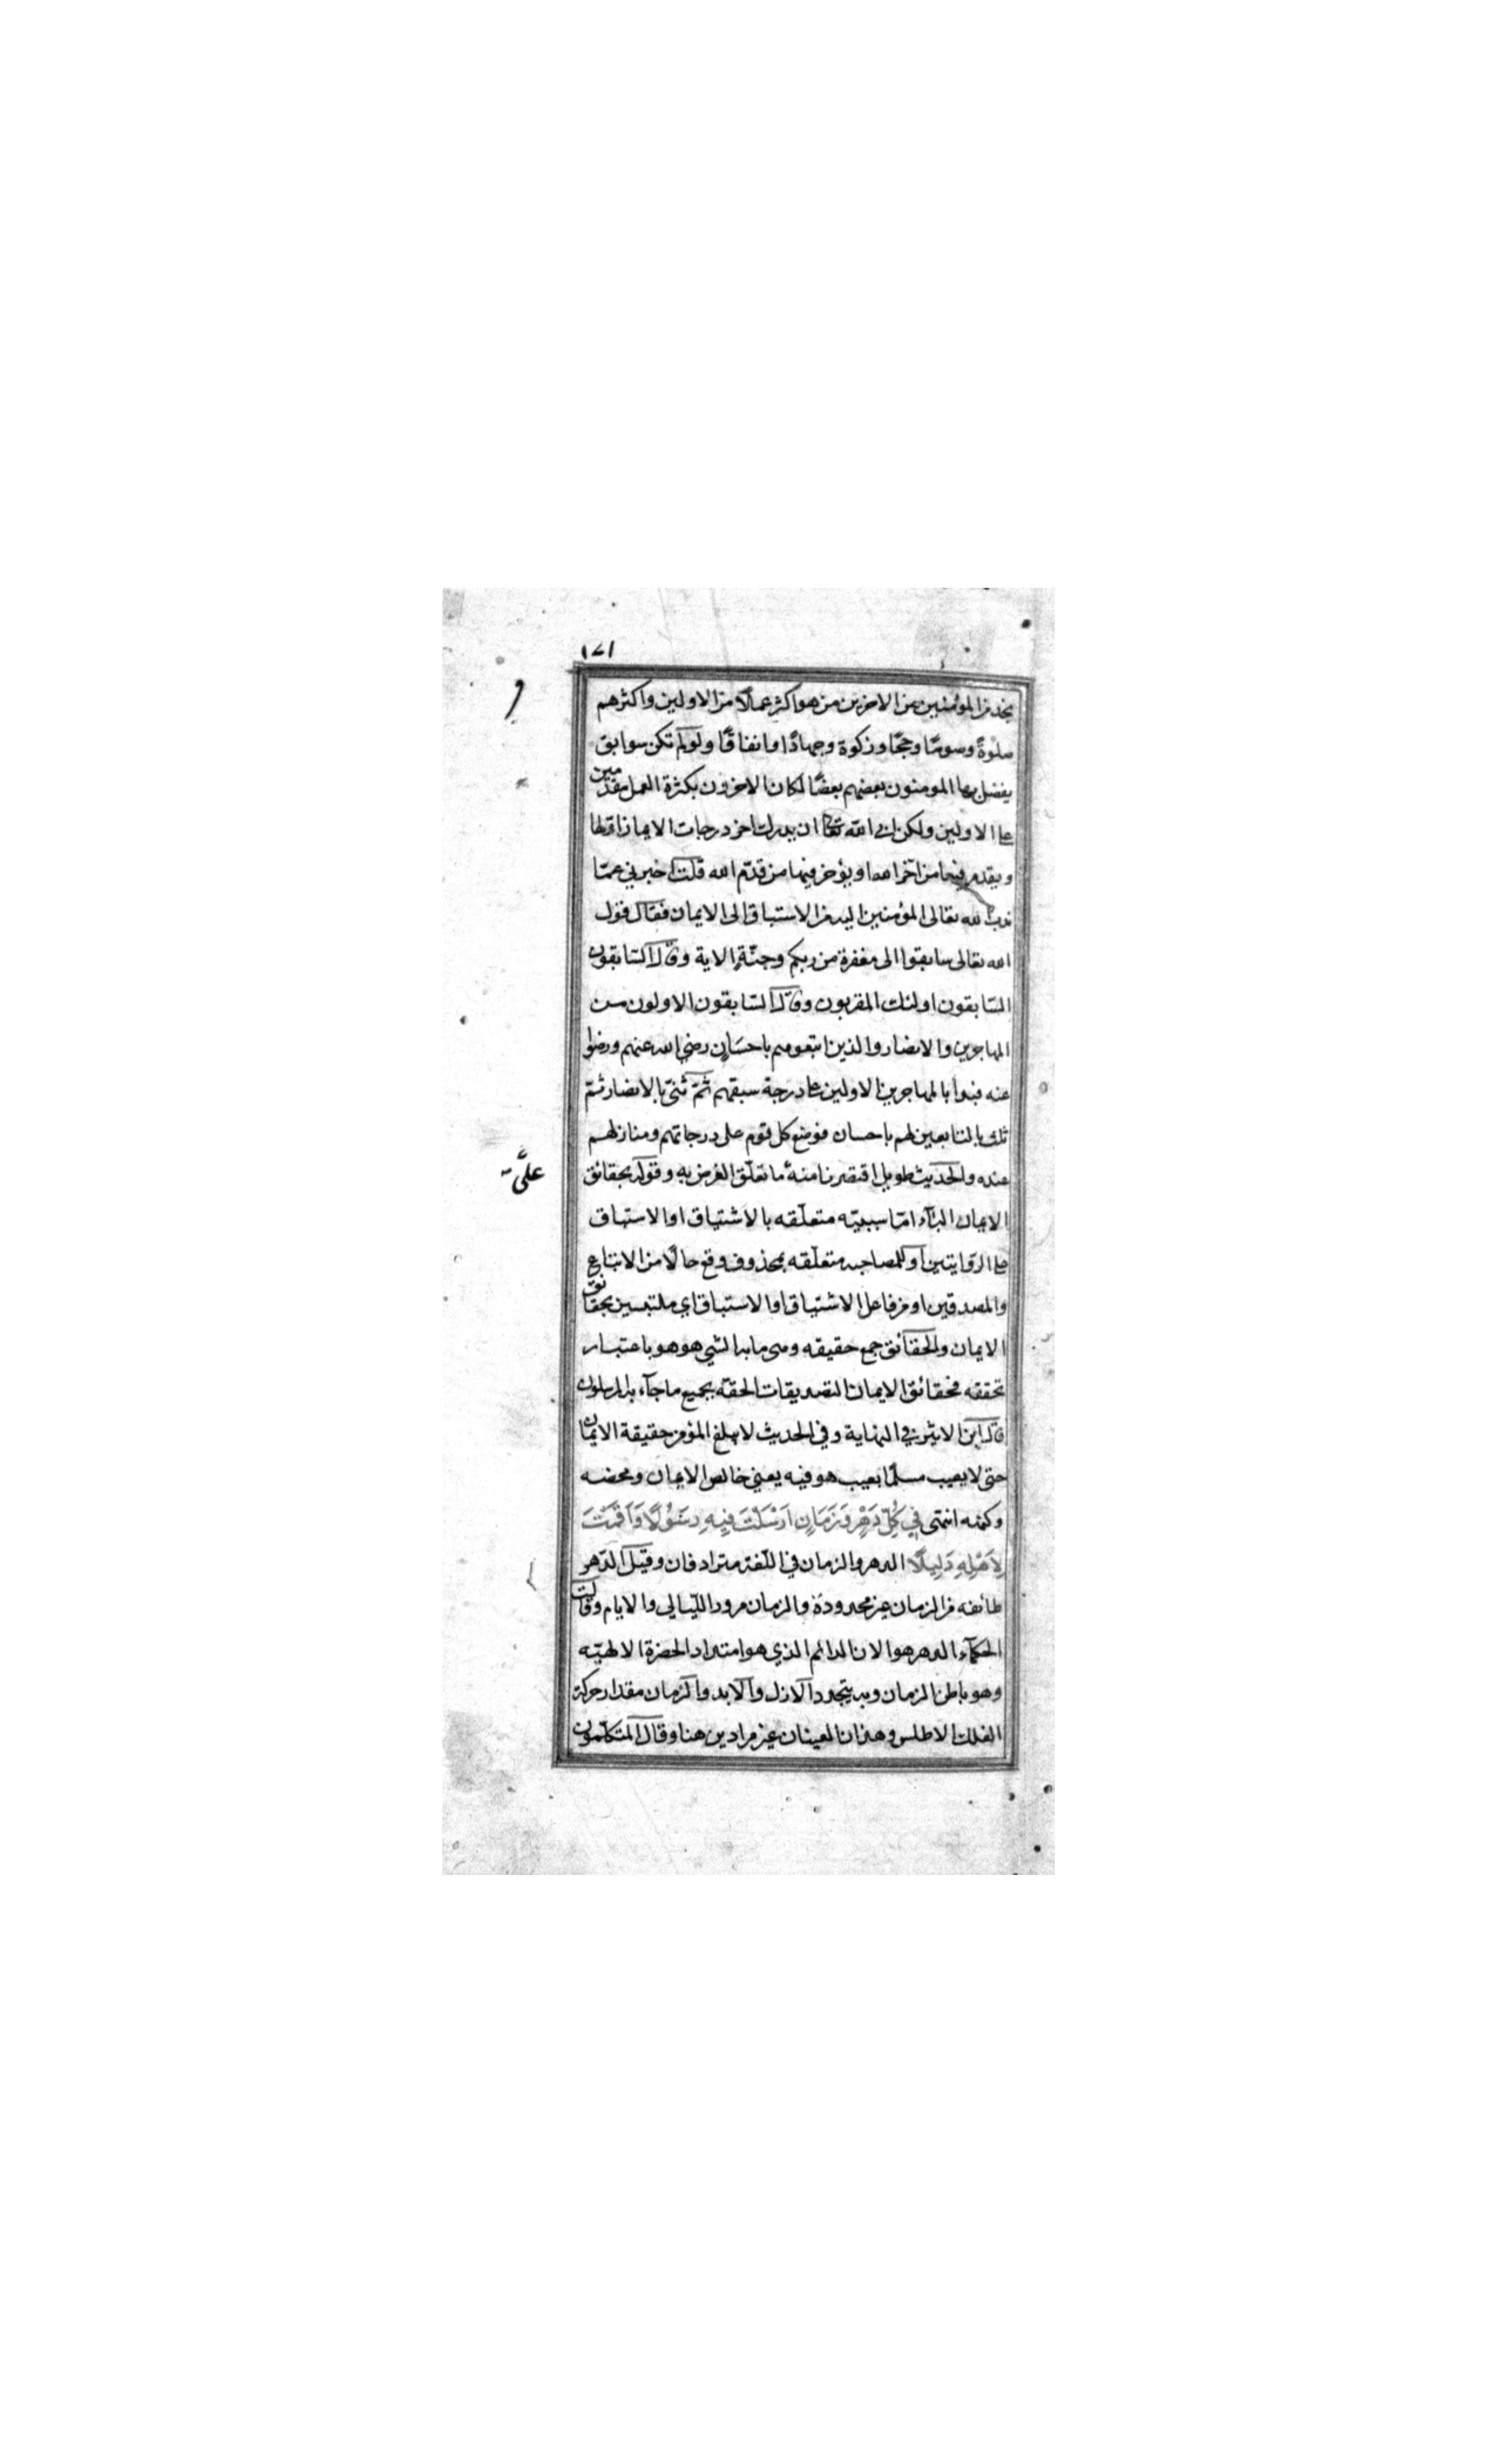 ١٧١
نجد من المؤمنين من الاخرين من هو اكثر عملًا من الاولين واكثرهم
صلوةً وصومًا وحجّا وزكوة وجهادًا وانفاقًا ولو لم تكن سوابق
يفضل بها المومنون بعضهم بعضًا لكان الاخرون بكثرة العمل مقدّمين
على الاولين ولكن ابى الله تعالى ان يدرك اخر درجات الايمان اوّلها
ويقدم فيها من اخّر الله او يؤخر فيها من قدّم الله قلت اخبرني عمّا
ندب الله تعالى المؤمنين اليه من الاستباق الى الايمان فقال قول
الله تعالى سابقوا الى مغفرة من ربكم وجنّة الاية وقال السّابقون
السّابقون اولئك المقربون وقال السّابقون الاولون من
المهاجرين والانصار والذين اتبعوهم باحسَانٍ رضي الله عنهم ورضوا
عنه فبدأ بالمهاجرين الاولين على درجة سبقهم ثمّ ثنّى بالانصار ثمّ
ثلث بالتابعين لهم باحسان فوضع كل قوم على درجاتهم ومنازلهم
عنده والحديث طويل اقتصرنا منه ما تعلّق الغرض به وقوله بحقائق
الايمان البآء امّا سببيّه متعلّقه بالاشتياق او الاستباق
على الرّوايتين او للمصاحبه متعلّقه بمحذوف وقع حالًا من الاتباع
والمصدقين او من فاعل الاشتياق او الاستباق اي ملتبسين بحقائق
الايمان والحقائق جمع حقيقه وهى ما به الشي هو هو باعتبار
تحققه فحقائق الايمان التصديقات الحقّه بجميع ما جآء به المرسلون
قال ابن الاثير في النهاية وفي الحديث لا يبلغ المؤمن حقيقة الايمان
حتى لا يعيب مسلمًا بعيب هو فيه يعني خالص الايمان ومحضه
وكنهه انتهى في كُلِّ دَهْرٍ وَزَمَانٍ اَرْسَلْتَ فيِهِ رَسُوْلًا وَاَقَمْتَ
لِاَهْلِهِ دَلِيلًا الدهر والزمان في اللّغة مترادفان وقيل الدّهر
طائفه من الزمان غير محدودة والزمان مرور الليّالي والايام وقالت
الحكمآء الدهر هو الان الدائم الذي هو امتداد الحضرة الالهيّه
وهو باطن الزمان وبه يتجدد الازل والابد والزمان مقدار حركة
الفلك الاطلس وهذان المعينان غير مرادين هنا وقال المتكلّمون
علىَّ